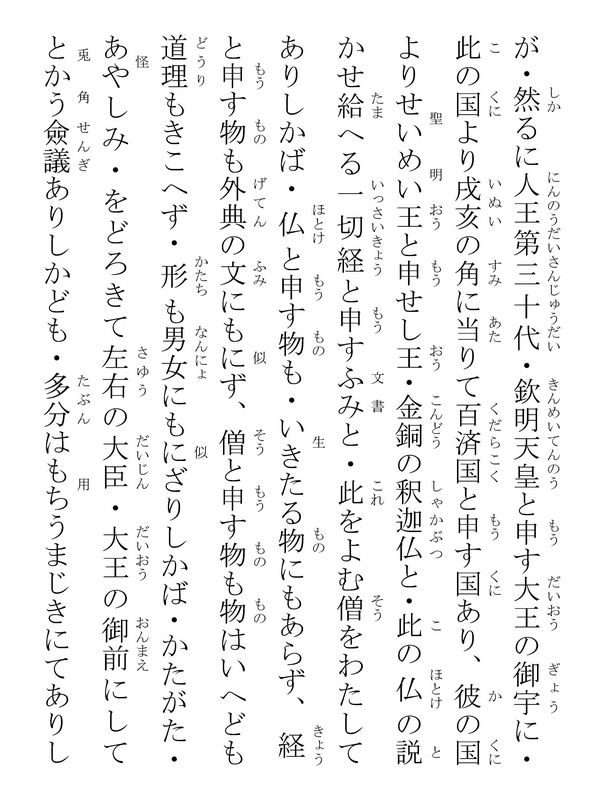 が・然るに人王第三十代・欽明天皇と申す大王の御宇に・
此の国より戌亥の角に当りて百済国と申す国あり、彼の国
よりせいめい王と申せし王・金銅の釈迦仏と・此の仏の説
かせ給へる一切経と申すふみと・此をよむ僧をわたして
ありしかば・仏と申す物も・いきたる物にもあらず、経
と申す物も外典の文にもにず、僧と申す物も物はいへども
道理もきこへず・形も男女にもにざりしかば・かたがた・
あやしみ・をどろきて左右の大臣・大王の御前にして
とかう僉議ありしかども・多分はもちうまじきにてありし